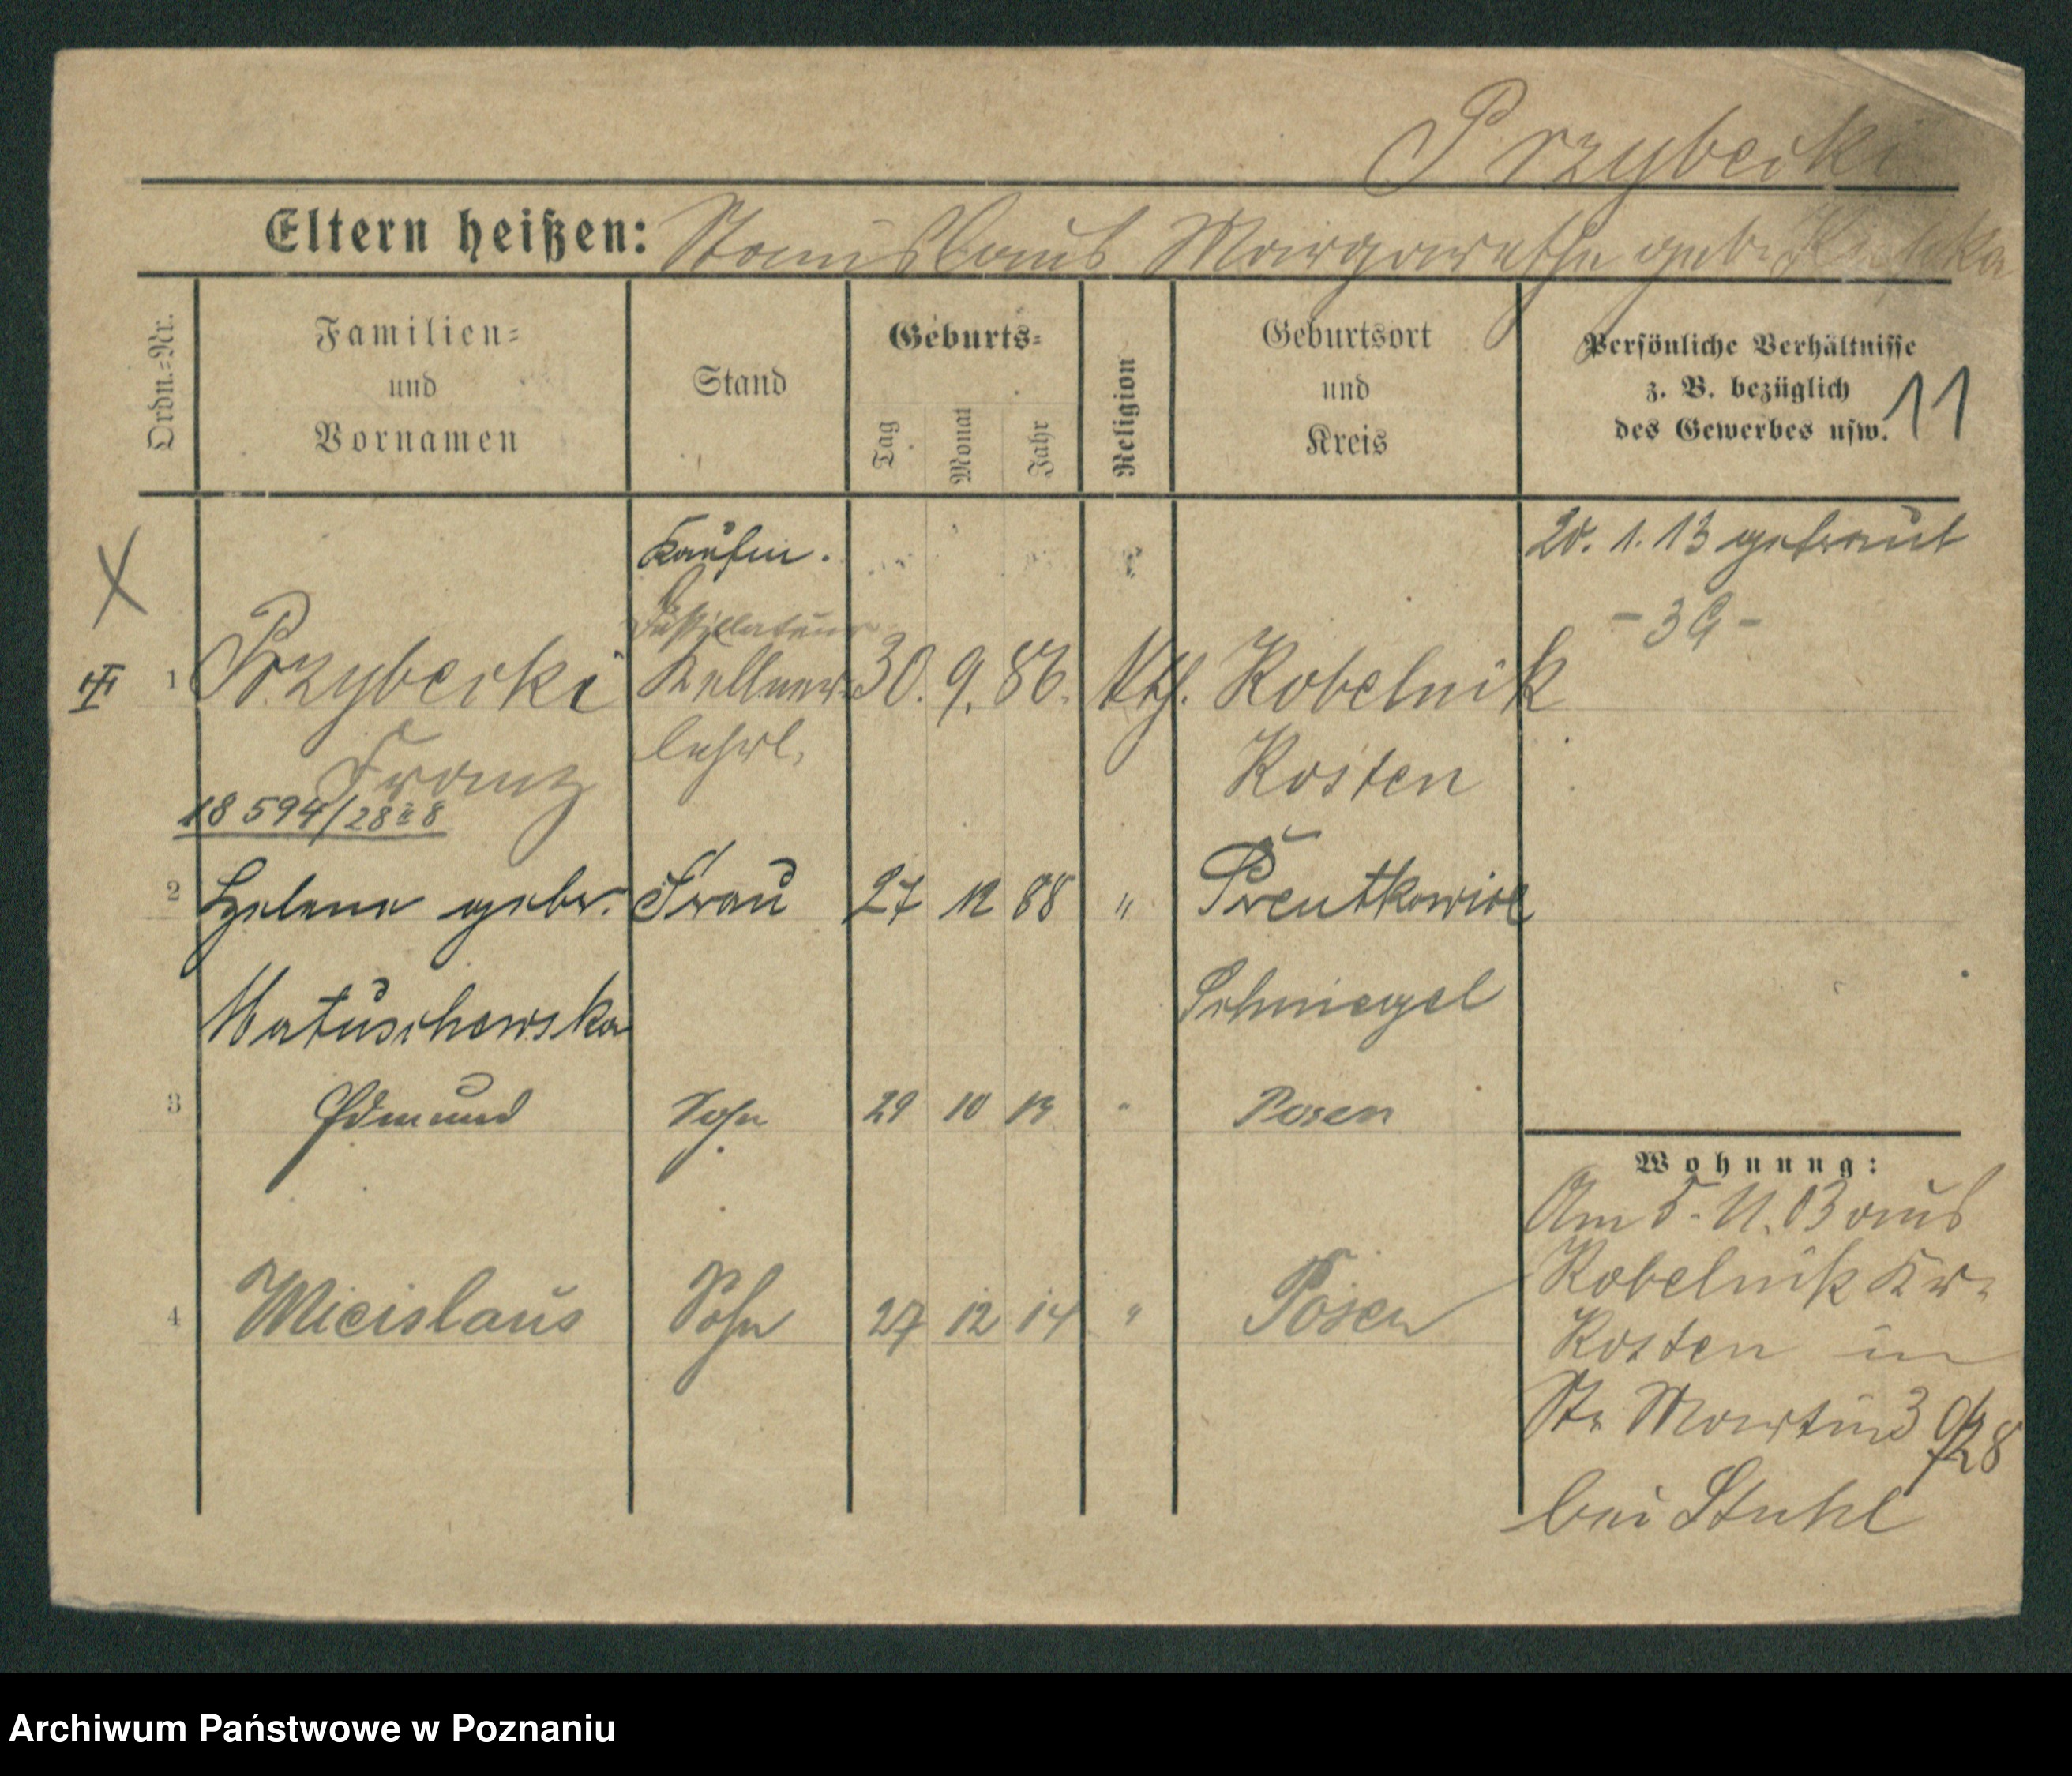 Przybecki
Eltern heißen: Stanislaus Margarethe geb.
Ordn.-Nr.
Familien-
und
Vornamen
Stand
Geburts-
Tag
Monat
Jahr
Religion
Geburtsort
und
Kreis
Persönliche Verhältnisse
z. B. bezüglich
des Gewerbes usw.
11
Kaufm.
20. 1. 13 getraut
Destillateur
- 39 -
1 Przybecki Kellner- 30. 9. 86. kth. Kobelnik
Franz lehrl. Kosten
18 594/28 8
2 Helene geb. Frau 27 12 88 " Prentkowice
Matuschewska Schmiegel
3 Edmund Sohn 29 10 13 " Posen
Wohnung:
Am 5. 11. 03 aus
Kobelnik Kr.
4 Miecislaus Sohn 27 12 14 " Posen
Kosten in
St. Martin 3
bei Stuhl
Archiwum Państwowe w Poznaniu